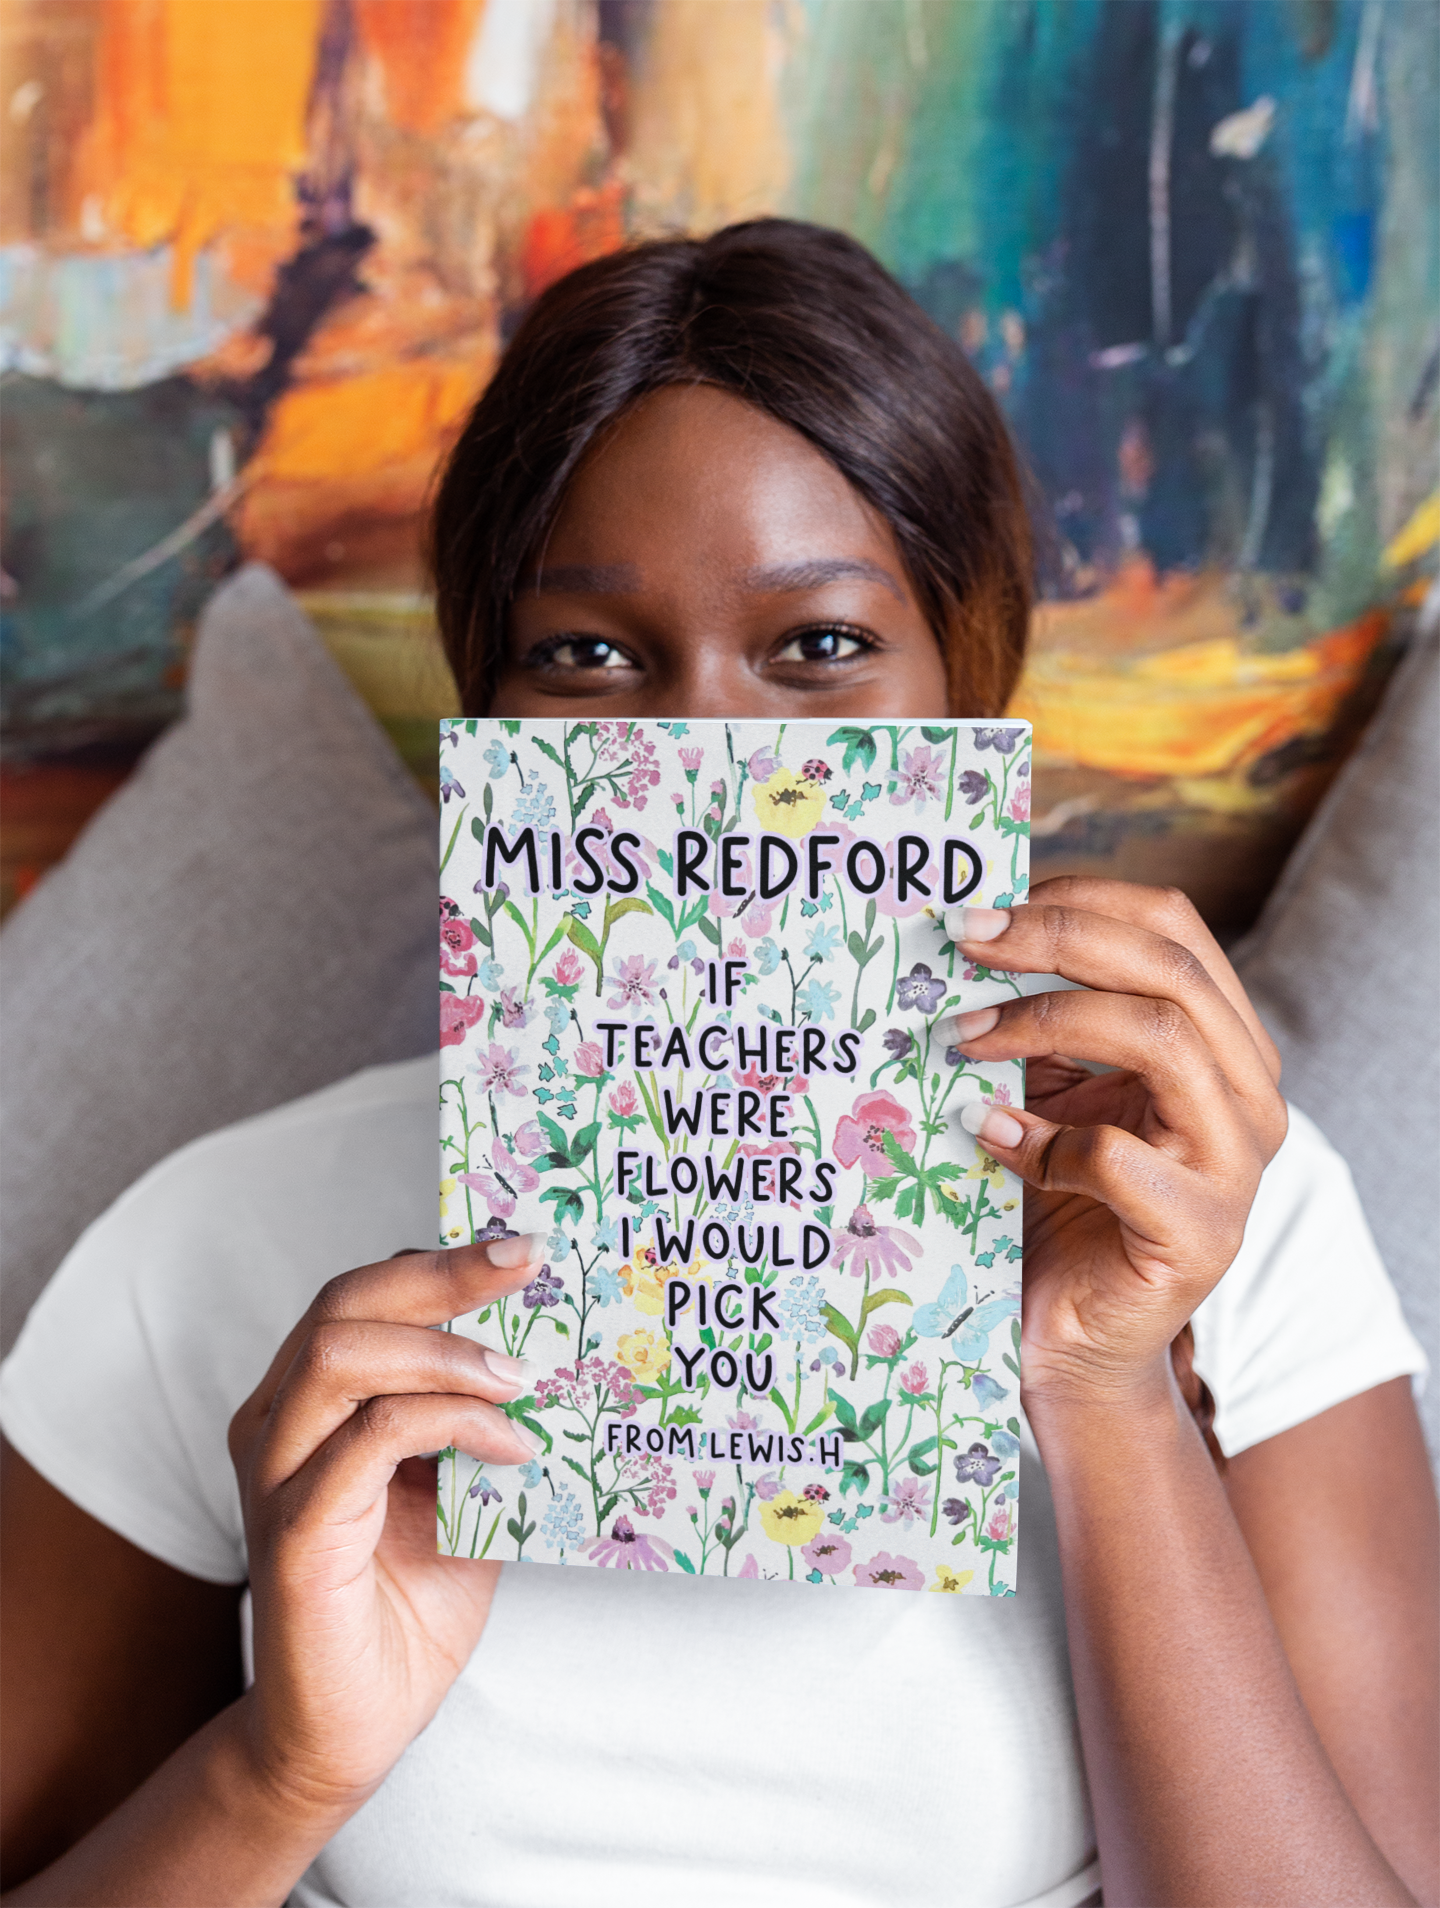 MISS REDFORD
IF
TEACHERS
WERE
FLOWERS
I WOULD
PICK
YOU
FROM LEWIS.H